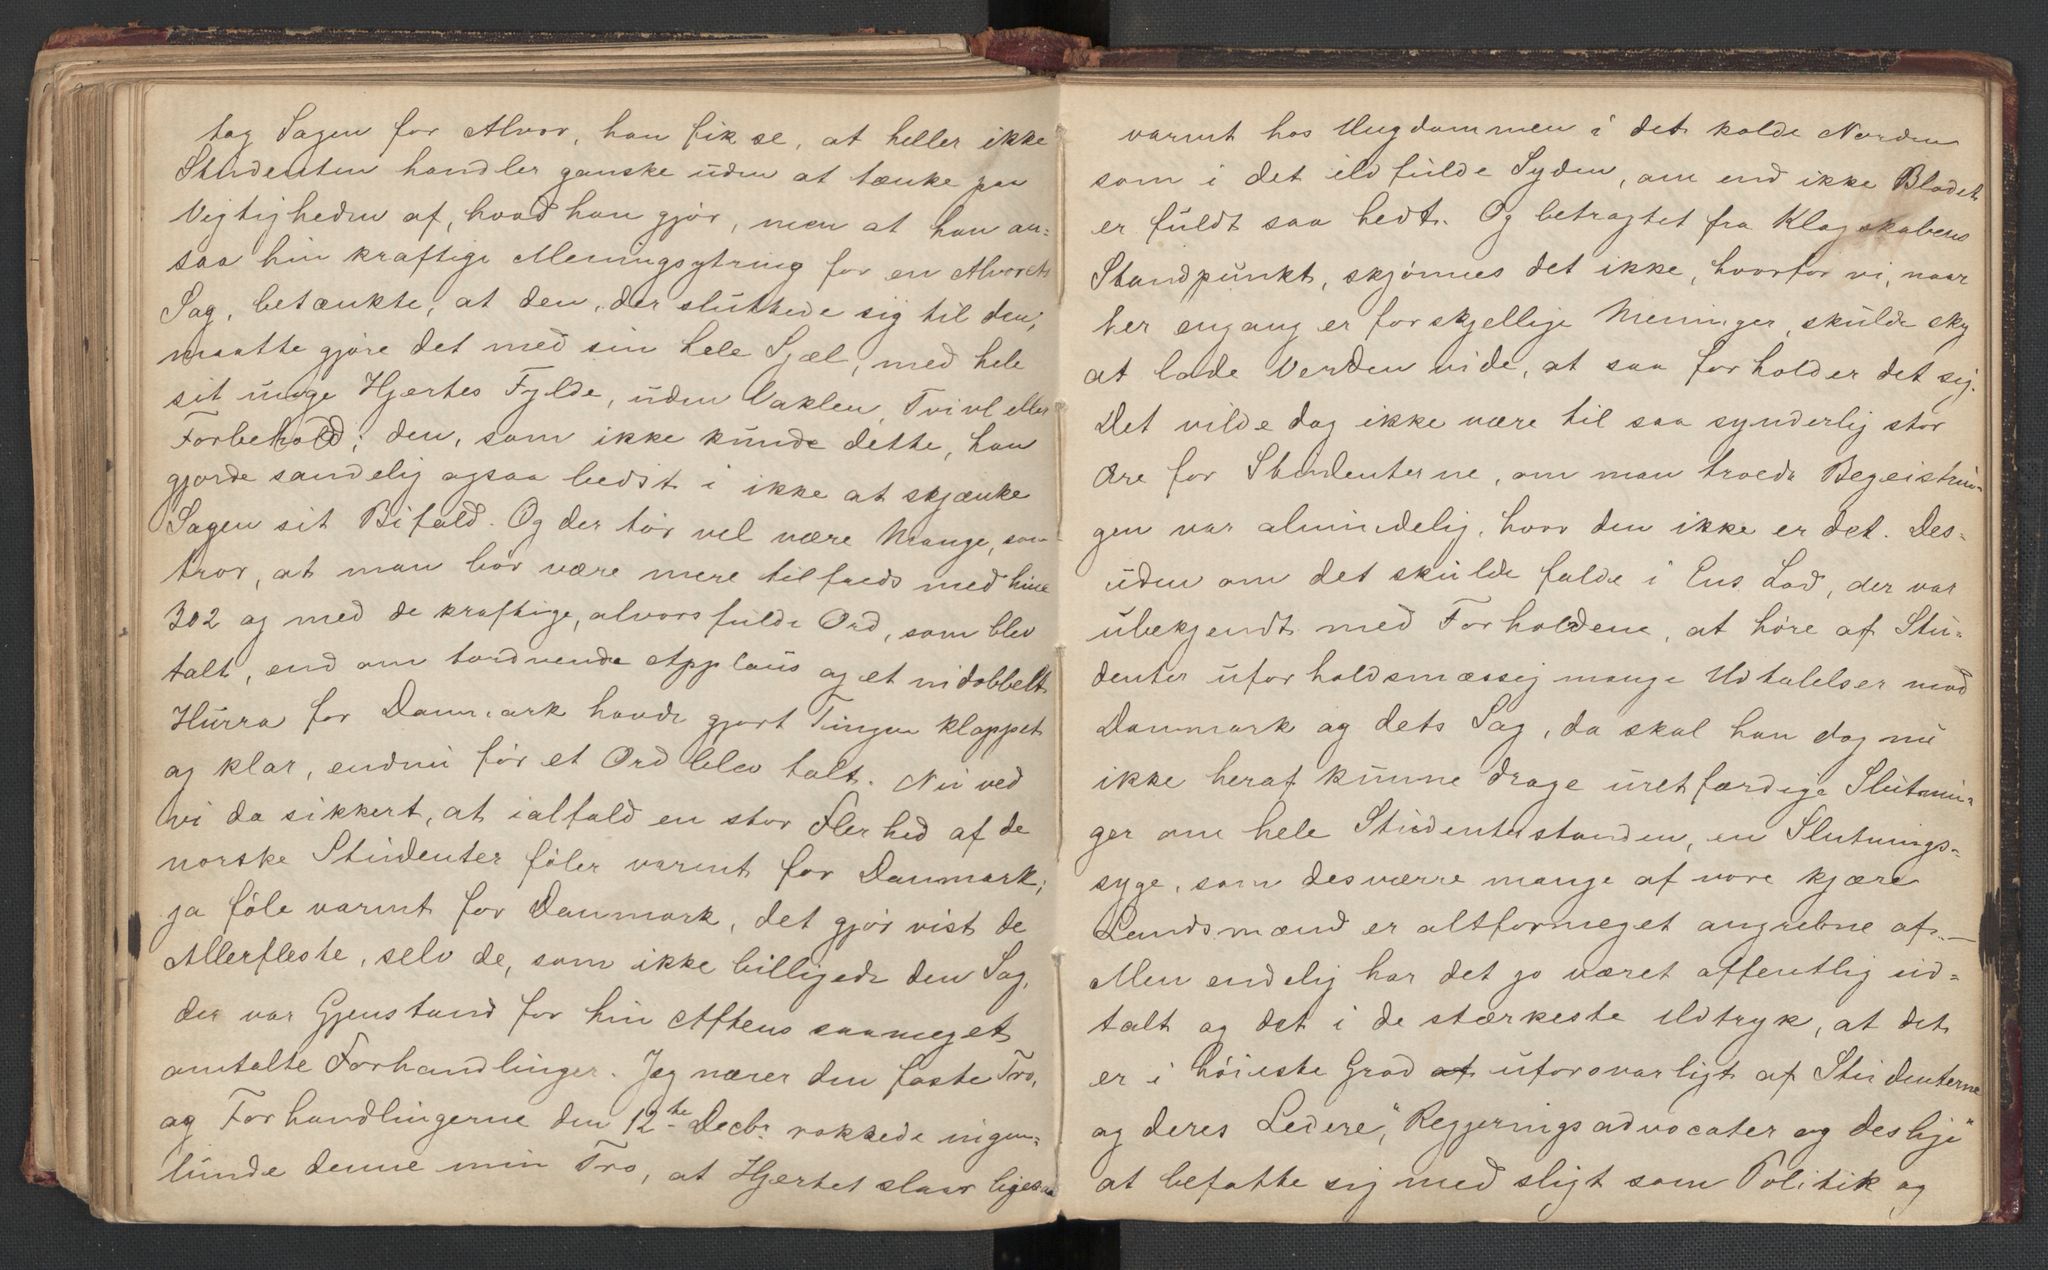 tog Sagen for Alvor, han fik se, at heller ikke
Studenten handler ganske uden at tænke paa
Vigtigheden af, hvad han gjør, men at han an-
saa hin kraftige Meningsytring for en Alvorets
Sag, betænkte, at den, der sluttede sig til den,
maatte gjøre det med sin hele Sjæl, med hele
sit unge Hjertes Fylde, uden Vaklen, Tvivl eller
Forbehold; den, som ikke kunde dette, han
gjorde sandelig ogsaa bedst i ikke at skjænke
Sagen sit Bifald. Og der tør vel være Mange, som
tror, at man bør være mere tilfreds med hine
302 og med de kraftige, alvorsfulde Ord, som blev
talt, end om tordnende Applaus og et nidobbelt
Hurra for Danmark havde gjort Tingen klappet
og klar, endnu før et Ord blev talt. Nu ved
vi da sikkert, at ialfald en stor Flerhed af de
norske Studenter føler varmt for Danmark;
ja føle varmt for Danmark, det gjør vist de
Allerfleste, selv de, som ikke billigede den Sag,
der var Gjenstand for hin Aftens saameget
omtalte Forhandlinger. Jeg nærer den faste Tro,
og Forhandlingerne den 12te Decbr. rokkede ingen-
lunde denne min Tro, at Hjertet slaar ligesaa
varmt hos Ungdommen i det kolde Norden
som i det ildfulde Syden, om end ikke Blodet
er fuldt saa hedt. Og betragtet fra Klogskabens
Standpunkt, skjønnes det ikke, hvorfor vi, naar
her engang er forskjellige Meninger, skulde sky
at lade Verden vide, at saa forholder det sig.
Det vilde dog ikke være til saa synderlig stor
Ære for Studenterne, om man troede Begeistrin-
gen var almindelig, hvor den ikke er det. Des-
uden om det skulde falde i Ens Lod, der var
ubekjendt med Forholdene, at høre af Stu-
denter uforholdsmæssig mange Udtalelser mod
Danmark og dets Sag, da skal han dog nu
ikke heraf kunne drage uretfærdige Slutnin-
ger om hele Studenterstanden, en Slutnings-
syge, som desværre mange af vore kjære
Landsmænd er altformeget angrebne af. —
Men endelig har det jo været offentlig ud-
talt og det i de stærkeste Udtryk, at det
er i høieste Grad at uforsvarligt af Studenterne
og deres Ledere, "Regjeringsadvocater og deslige"
at befatte sig med sligt som Politik og